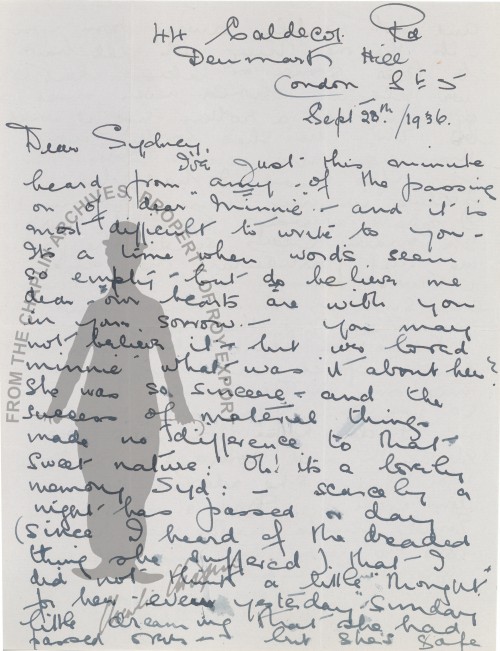 44 Caldecot Rd
Denmark Hill
London S E 5
Sept 28th/1936.
Dear Sydney,
I've just this minute
heard from "amy" of the passing
on of dear Minnie - and it is
most difficult to write to you -
Its a time when words seem
so empty - but do believe me
dear our hearts are with you
in your sorrow - you may
not believe it - but we loved
minnie what was it about her?
She was so sincere - and the
success of material things
made no difference to that
Sweet nature. Oh! its a lovely
memory Syd: - scarcely a
night has passed or day
(since I heard of the dreaded
thing she suffered) that I
did not think a little "thought"
for her - even yesterday "Sunday
little dreaming that she had
passed over - but she's safe
FROM THE CHAPLIN ARCHIVES, PROPERTY OF ROY EXPORT